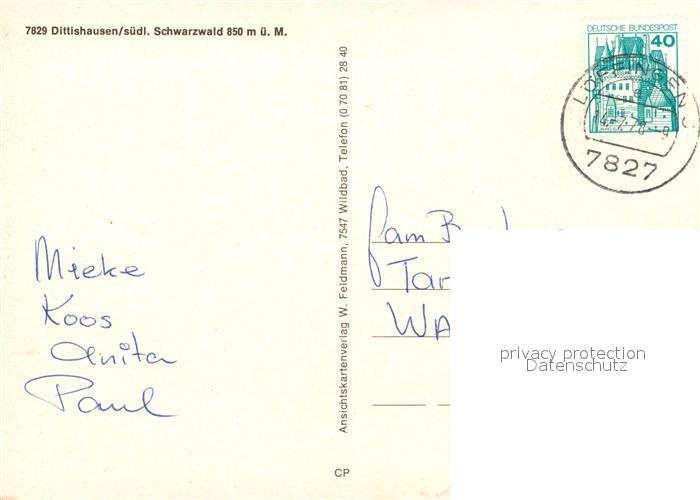 7829 Dittishausen/südl. Schwarzwald 850 m ü. M.
DEUTSCHE BUNDESPOST
40
LÖFFINGEN
7827
Ansichtskartenverlag W. Feldmann, 7547 Wildbad, Telefon (0 70 81) 28 40
Mieke
Koos
Anita
Paul
Fam
privacy protection
Datenschutz
CP